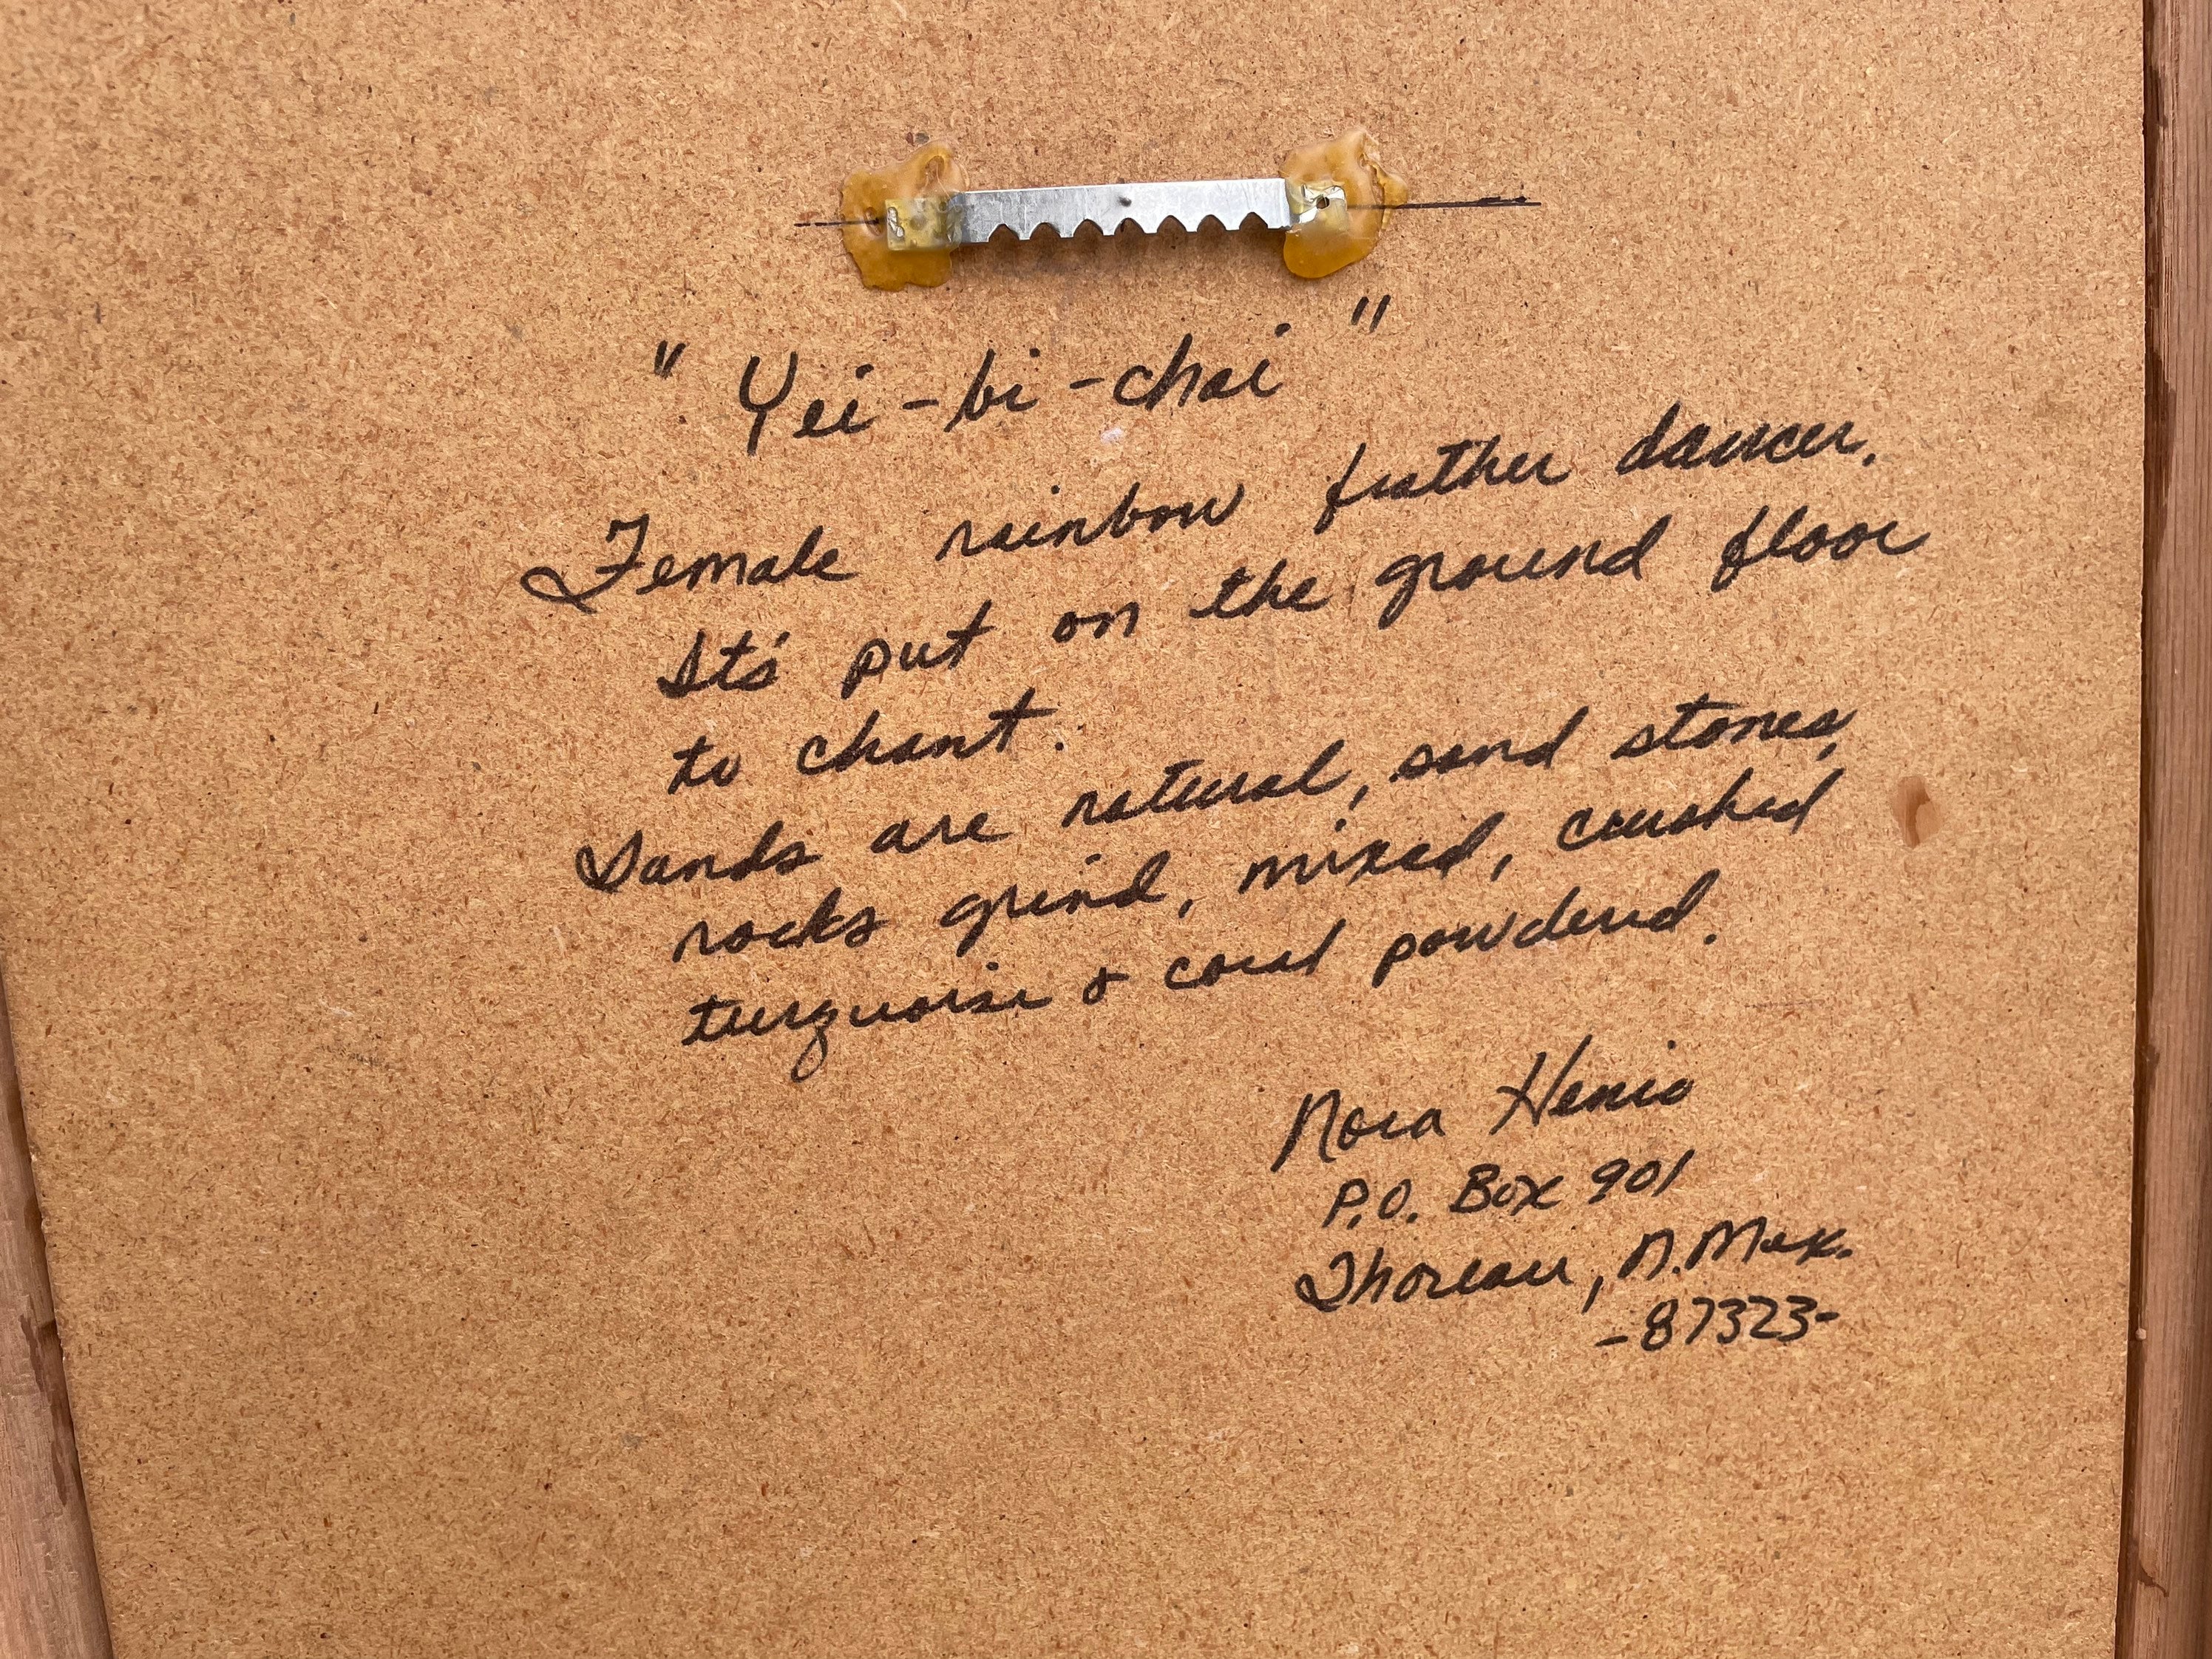 " Yei-bi-chai "
Female rainbow feather dancer.
It's put on the ground floor
to chant.
Sands are natural, sand stones,
rocks grind, mixed, crushed
turquoise & coral powdered.
Nora Henio
P.O. Box 901
Thoreau, N. Mex.
-87323-